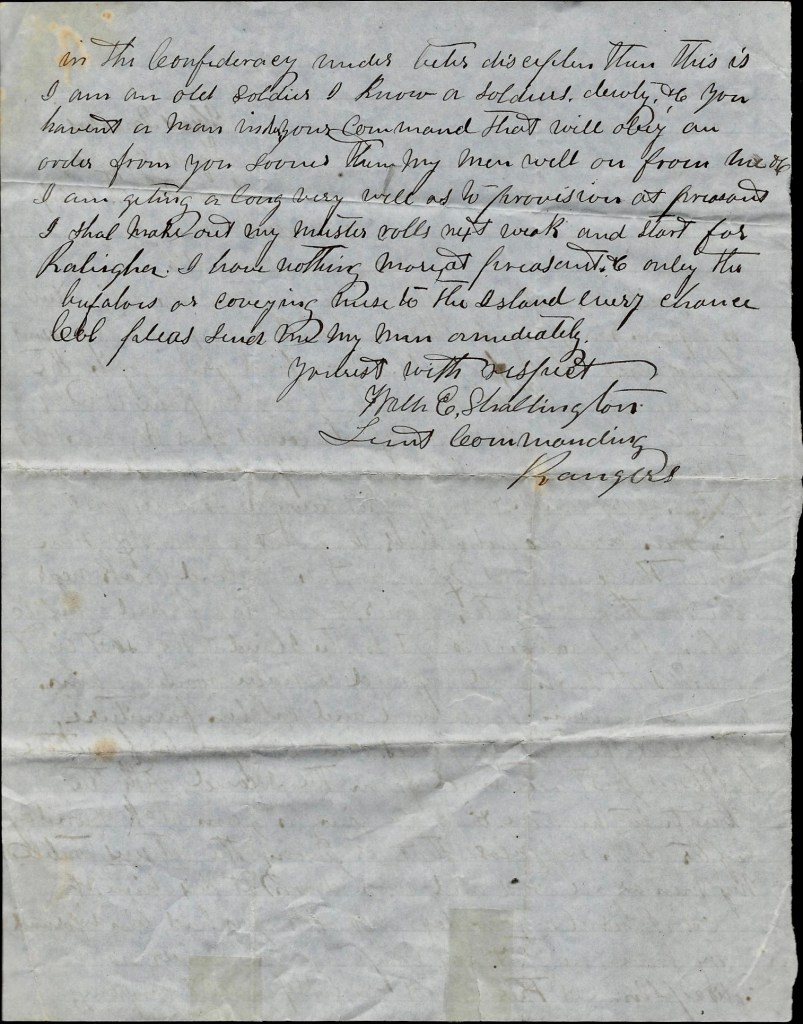 in the Confederacy under beter disciplin then this is
I am an old soldier I know a soldiers. dewty. &c you
havent a man in your Command that will obey an
order from you sooner then my men will on from me &c
I am geting a long very well as to provision at preasant
I shal make out my muster rolls next weak and start for
Raleigh. I have nothing more at preasant. &c only the
bufalous ar coveying nuse to the Island every chance
Col pleas send me my men amediately.
Yourst with respect
Wm E, Shallington
Lieut Commanding
Rangers